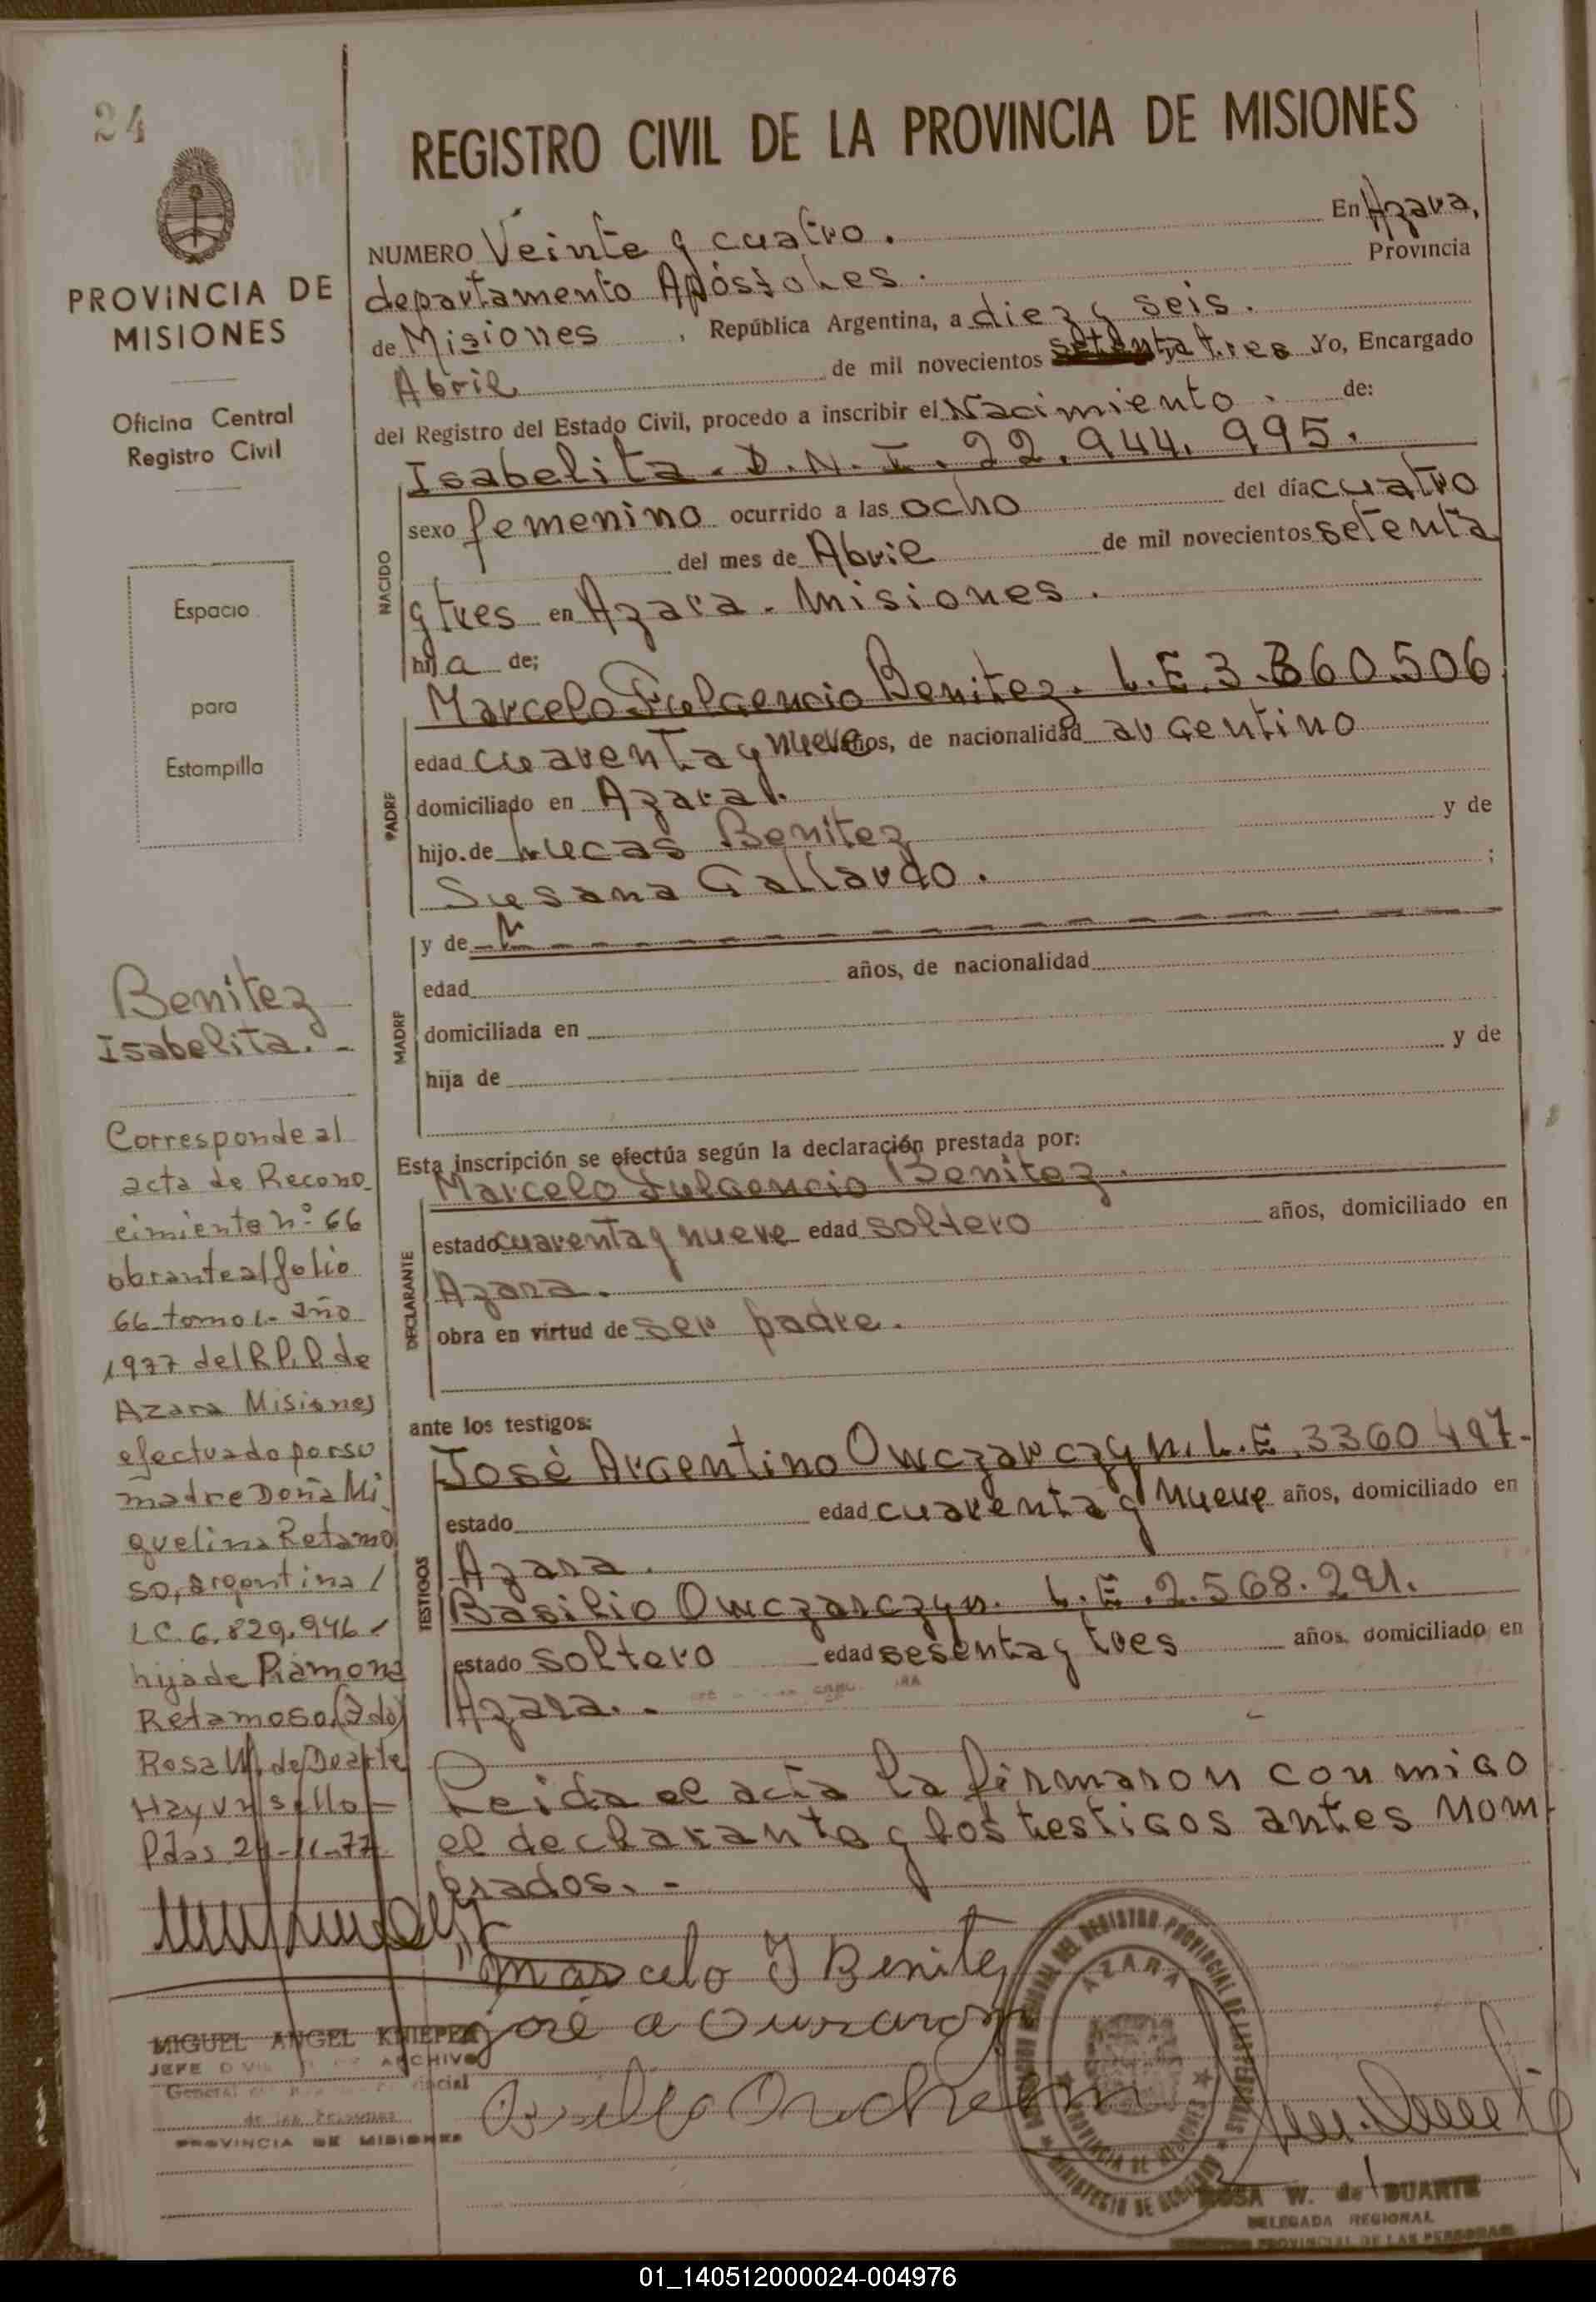 24
REGISTRO CIVIL DE LA PROVINCIA DE MISIONES
PROVINCIA DE
MISIONES
Oficina Central
Registro Civil
Espacio
para
Estampilla
NUMERO Veinte y cuatro. En Azara,
departamento Apóstoles. Provincia
de Misiones, República Argentina, a diez y seis.
Abril de mil novecientos setenta tres Yo, Encargado
del Registro del Estado Civil, procedo a inscribir el Nacimiento. de:
NACIDO
Isabelita. D.N.I. 22.944.995.
sexo femenino ocurrido a las ocho del día cuatro
del mes de Abril de mil novecientos setenta
y tres en Azara. Misiones.
hija de;
PADRE
Marcelo Fulgencio Benitez. L.E. 3.360.506
edad cuarenta y nueve años, de nacionalidad argentino
domiciliado en Azara.
hijo de Lucas Benitez y de
Susana Gallardo. ;
MADRE
y de
edad años, de nacionalidad
domiciliada en
hija de y de
Esta inscripción se efectúa según la declaración prestada por:
DECLARANTE
Marcelo Fulgencio Benitez.
estado cuarenta y nueve edad soltero años, domiciliado en
Azara.
obra en virtud de ser padre.
ante los testigos:
TESTIGOS
José Argentino Owczarczyn. L.E. 3360497.
estado edad cuarenta y nueve años, domiciliado en
Azara.
Basilio Owczarczyn. L.E. 2.568.291.
estado soltero edad sesenta y tres años, domiciliado en
Azara.
Leida el acta la firmaron con migo
el declarante y los testigos antes nom-
brados.-
Marcelo F Benitez
José A
Benitez
Isabelita.-
Corresponde al
acta de Recono-
cimiento nº 66
obrante al folio
66 tomo 1- año
1977 del R.P.P. de
Azara Misiones
efectuado por su
madre Doña Mi-
guelina Retamo
so, argentina/
LC. 6.829.946-
hija de Ramona
Retamoso. (Fdo)
Rosa W. de Duarte
Hay un sello-
Pdas 24-11-77
MIGUEL ANGEL KNIEPER
JEFE ARCHIVO
General
de las Personas
PROVINCIA DE MISIONES
DEL REGISTRO PROVINCIAL DE LAS PERSONAS
AZARA
PROVINCIA DE MISIONES
MINISTERIO DE GOBIERNO
ROSA W. de DUARTE
DELEGADA REGIONAL
PROVINCIAL DE LAS PERSONAS
01_140512000024-004976